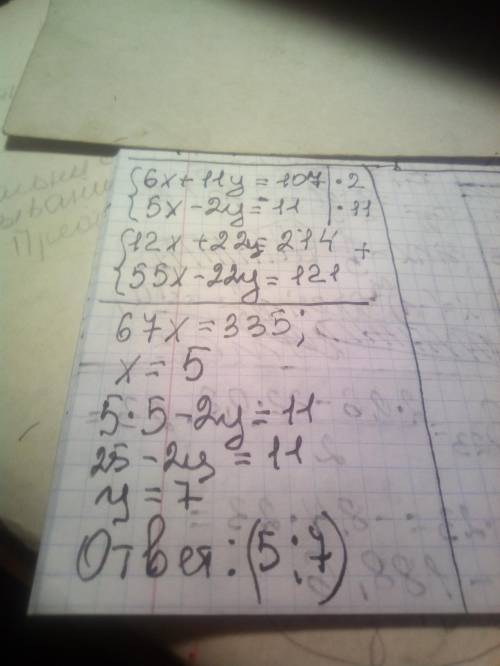 {6x+11y=107|·2
{5x-2y=11|·11
{12x+22y=214 +
{55x-22y=121
67x=335;
x=5
5·5-2y=11
25-2y=11
y=7
Ответ:(5;7)